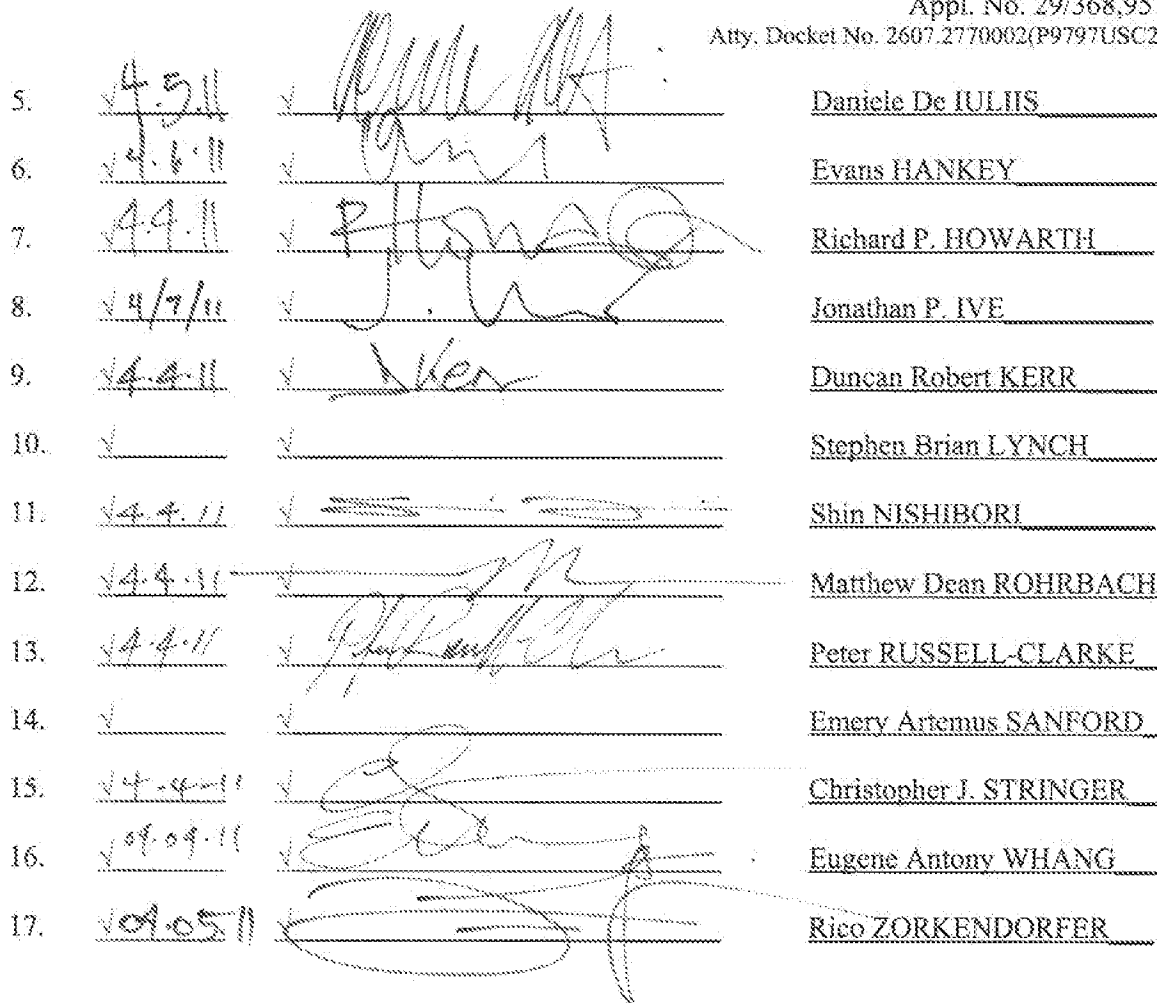 Appl. No. 29/368,95
Atty. Docket No. 2607.2770002(P9797USC2
5. √ 4.5.11 √ Daniele De IULIIS
6. √ 4.6.11 √ Evans HANKEY
7. √ 4.4.11 √ Richard P. HOWARTH
8. √ 4/7/11 √ Jonathan P. IVE
9. √ 4.4.11 √ DKerr Duncan Robert KERR
10. √ √ Stephen Brian LYNCH
11. √ 4.4.11 √ Shin NISHIBORI
12. √ 4.4.11 √ Matthew Dean ROHRBACH
13. √ 4.4.11 √ Peter RUSSELL-CLARKE
14. √ √ Emery Artemus SANFORD
15. √ 4-4-11 √ Christopher J. STRINGER
16. √ 04.04.11 √ Eugene Antony WHANG
17. √ 04.05.11 √ Rico ZORKENDORFER